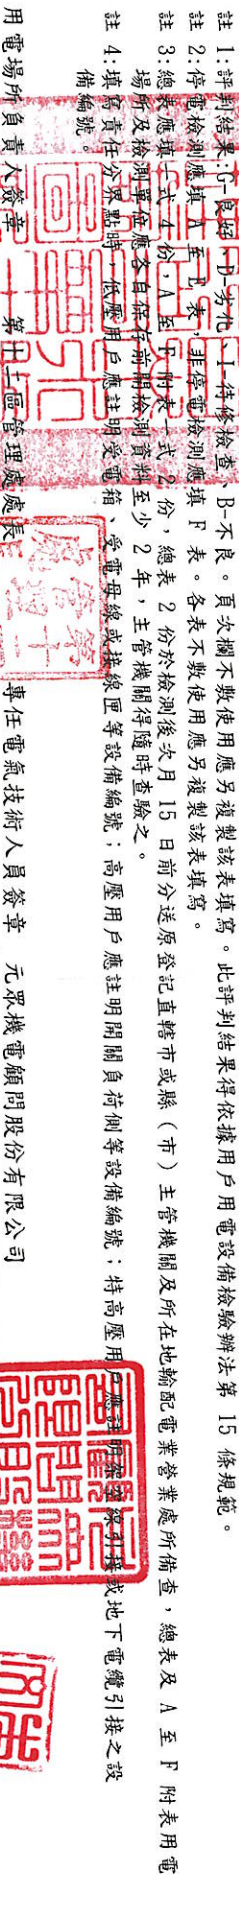 註 1:評判結果:G-良好、D-劣化、I-待修檢查、B-不良。頁次欄不敷使用應另複製該表填寫。此評判結果得依據用戶用電設備檢驗辦法第 15 條規範。
註 2:停電檢測應填 A 至 E 表，非停電檢測應填 F 表。各表不敷使用應另複製該表填寫。
註 3:總表應填一式 4 份，A 至 F 附表一式 2 份，總表 2 份於檢測後次月 15 日前分送原登記直轄市或縣（市）主管機關及所在地輸配電業營業處所備查，總表及 A 至 F 附表用電
場所及檢測單位應各自保存前開檢測資料至少 2 年，主管機關得隨時查驗之。
註 4:填寫責任分界點時，低壓用戶應註明受電箱、受電母線或接線匣等設備編號；高壓用戶應註明開關負荷側等設備編號；特高壓用戶應註明架空線引接或地下電纜引接之設
備編號。
用電場所負責人簽章 第十二區管理處處長 專任電氣技術人員簽章 元眾機電顧問股份有限公司